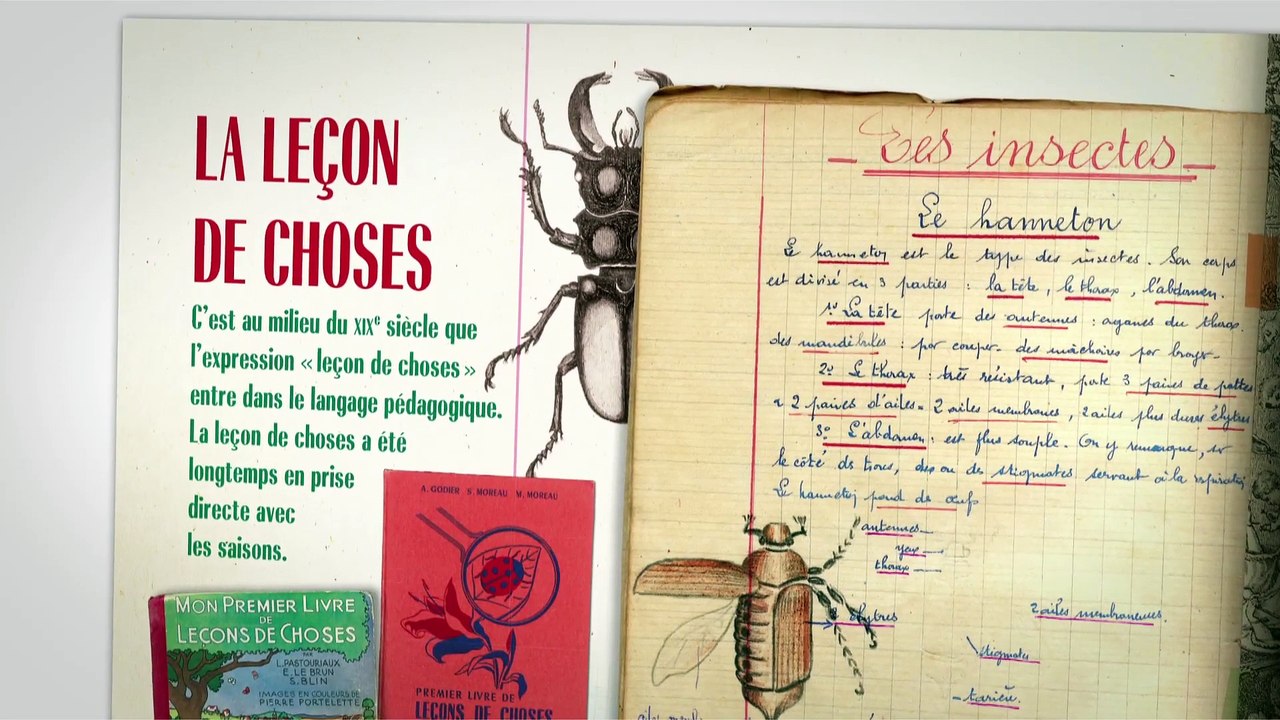 LA LEÇON
DE CHOSES
C'est au milieu du XIXe siècle que
l'expression « leçon de choses »
entre dans le langage pédagogique.
La leçon de choses a été
longtemps en prise
directe avec
les saisons.
A. GODIER S. MOREAU M. MOREAU
PREMIER LIVRE DE
LEÇONS DE CHOSES
MON PREMIER LIVRE
DE
LEÇONS DE CHOSES
PAR
L. PASTOURIAUX
E. LE BRUN
S. BLIN
IMAGES EN COULEURS DE
PIERRE PORTELETTE
Les insectes
Le hanneton
Le hanneton est le type des insectes. Son corps
est divisé en 3 parties : la tête, le thorax, l'abdomen.
1º La tête porte des antennes : organes du thorax.
des mandibules : par couper. des mâchoires par broyer
2º Le thorax : très résistant, porte 3 paires de pattes
2 paires d'ailes = 2 ailes membranes, 2 ailes plus dures élytres
3º L'abdomen : est plus souple. On y remarque, sr
le côté ds trous, des ou des stigmates servant à la respiration
Le hanneton pond de œufs
antennes
yeux
thorax
élytres
2 ailes membraneuses.
stigmates
tarière.